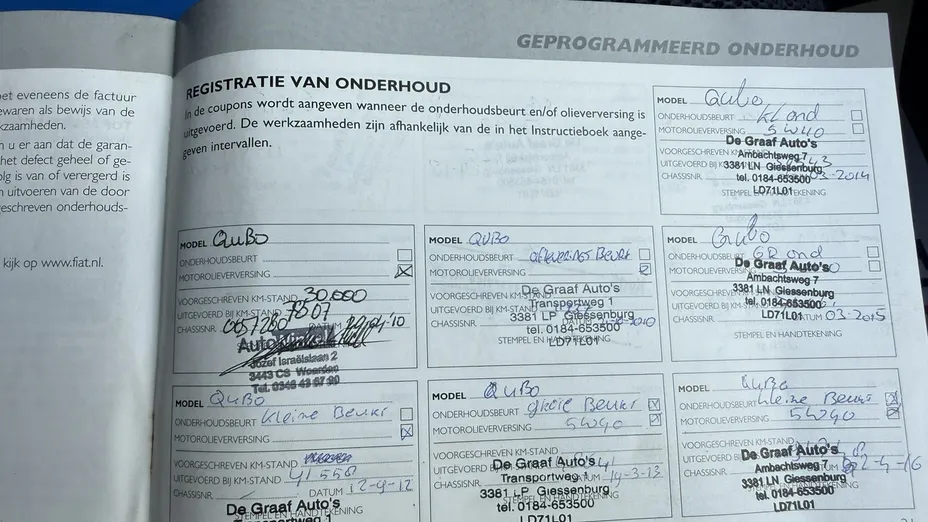 et eveneens de factuur
ewaren als bewijs van de
kzaamheden.
n u er aan dat de garan-
het defect geheel of ge-
olg is van of verergerd is
n uitvoeren van de door
geschreven onderhouds-
kijk op www.fiat.nl.
GEPROGRAMMEERD ONDERHOUD
REGISTRATIE VAN ONDERHOUD
In de coupons wordt aangeven wanneer de onderhoudsbeurt en/of olieverversing is
uitgevoerd. De werkzaamheden zijn afhankelijk van de in het Instructieboek aange-
geven intervallen.
MODEL Qubo
ONDERHOUDSBEURT Kl ond
MOTOROLIEVERVERSING 5W40
De Graaf Auto's
VOORGESCHREVEN KM-STAND
Ambachtsweg 7
UITGEVOERD BIJ KM-STAND
3381 LN Giessenburg
CHASSISNR. 03-2014
tel. 0184-653500
LD71L01
STEMPEL EN HANDTEKENING
MODEL QuBO
ONDERHOUDSBEURT
MOTOROLIEVERVERSING
VOORGESCHREVEN KM-STAND 30.000
UITGEVOERD BIJ KM-STAND
CHASSISNR. DATUM
Jozef Israëlslaan 2
3443 CS Woerden
Tel. 0348 43 57 90
MODEL QUBO
ONDERHOUDSBEURT afleverings Beurt
MOTOROLIEVERVERSING
De Graaf Auto's
VOORGESCHREVEN KM-STAND
Transportweg 1
UITGEVOERD BIJ KM-STAND
3381 LP Giessenburg
CHASSISNR. 2010
tel. 0184-653500
STEMPEL EN HANDTEKENING
LD71L01
MODEL Qubo
ONDERHOUDSBEURT GR ond
MOTOROLIEVERVERSING
De Graaf Auto's
Ambachtsweg 7
VOORGESCHREVEN KM-STAND
3381 LN Giessenburg
UITGEVOERD BIJ KM-STAND
tel. 0184-653500
CHASSISNR. DATUM 03-2015
LD71L01
STEMPEL EN HANDTEKENING
MODEL QUBO
ONDERHOUDSBEURT Kleine Beurt
MOTOROLIEVERVERSING
VOORGESCHREVEN KM-STAND
UITGEVOERD BIJ KM-STAND 41 550
CHASSISNR. DATUM 12-4-12
De Graaf Auto's
STEMPEL EN HANDTEKENING
MODEL QuBO
ONDERHOUDSBEURT grote Beurt
MOTOROLIEVERVERSING 5W40
VOORGESCHREVEN KM-STAND
De Graaf Auto's
UITGEVOERD BIJ KM-STAND
Transportweg 1
CHASSISNR. 14-3-13
3381 LP Giessenburg
STEMPEL EN HANDTEKENING
tel. 0184-653500
LD71L01
MODEL Qubo
ONDERHOUDSBEURT kleine Beurt
MOTOROLIEVERVERSING 5W40
VOORGESCHREVEN KM-STAND
De Graaf Auto's
UITGEVOERD BIJ KM-STAND
Ambachtsweg 7
CHASSISNR. DATUM
3381 LN Giessenburg
STEMPEL EN HANDTEKENING
tel. 0184-653500
LD71L01